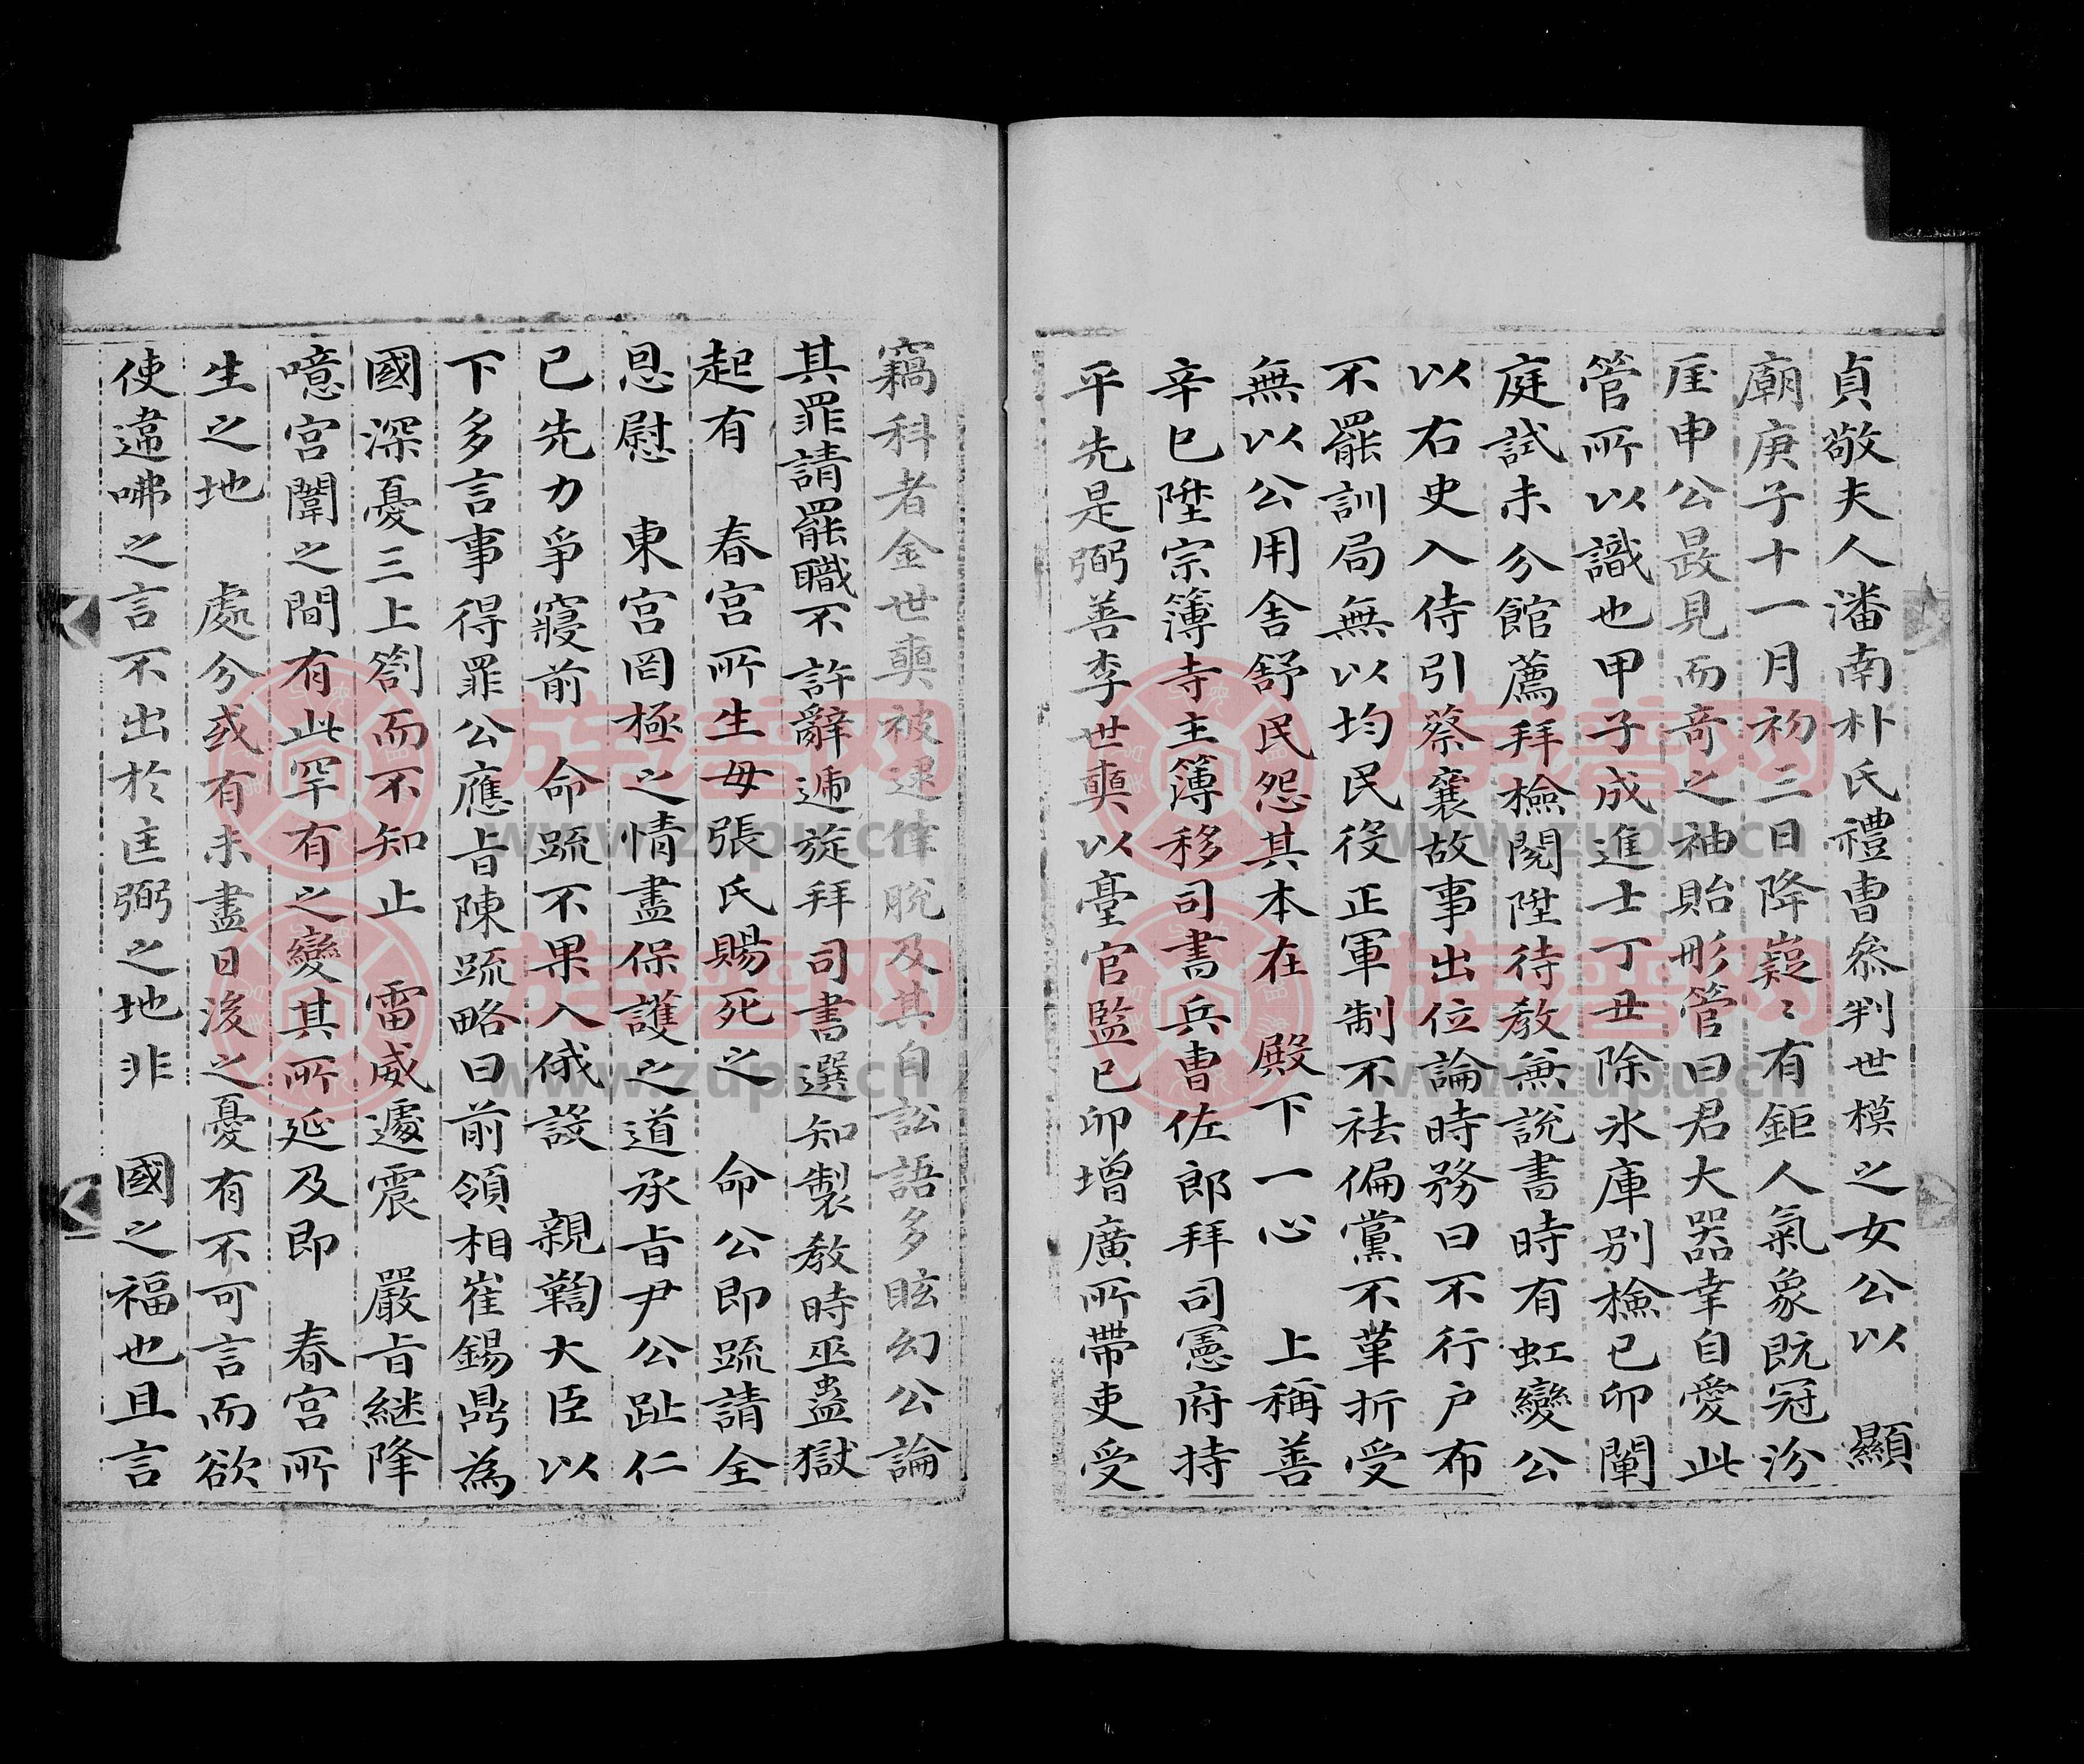 貞敬夫人潘南朴氏禮曹叅判世模之女公以　顯
廟庚子十一月初三日降嶷〻有鉅人氣象既冠汾
厓申公㝡見而奇之袖貽彤管曰君大器幸自愛此
管所以識也甲子成進士丁丑除氷庫別檢己卯闡
庭試未分舘薦拜檢閱陞待敎兼說書時有虹變公
以右史入侍引蔡襄故事出位論時務曰不行户布
不罷訓局無以均民役正軍制不祛偏黨不革折受
無以公用舍舒民怨其本在　殿下一心　上稱善
辛巳陞宗簿寺主簿移司書兵曹佐郎拜司憲府持
平先是弼善李世奭以臺官監己卯增廣所帶吏受
竊科者金世奭被逮倖脫及其自訟語多眩幻公論
其罪請罷職不許辭遞旋拜司書選知製敎時巫蠱獄
起有　春宮所生母張氏賜死之　命公即疏請全
恩慰　東宮罔極之情盡保護之道承旨尹公趾仁
已先力爭寢前　命疏不果入俄設　親鞫大臣以
下多言事得罪公應旨陳疏略曰前領相崔錫鼎為
國深憂三上劄而不知止　雷威遽震　嚴旨継降
噫宮闈之間有此罕有之變其所延及即　春宮所
生之地　處分或有未盡日後之憂有不可言而欲
使違咈之言不出於匡弼之地非　國之福也且言
族譜网
www.zupu.cn
族譜网
www.zupu.cn
族譜网
www.zupu.cn
族譜网
www.zupu.cn